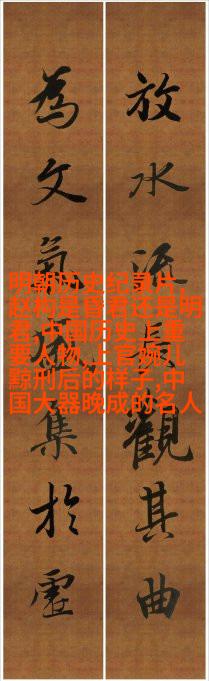 放水流長觀其曲
為文氣集於虛
明朝历史纪录片,
赵构是昏君还是明
君,中国历史上重
要人物,上官婉儿
黥刑后的样子,中
国大器晚成的名人